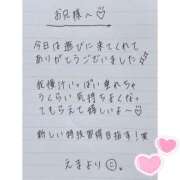 お兄様へ♡
今日は遊びに来てくれて
ありがとうございました
我慢汁いっぱい垂れちゃ
うくらい気持ちよくなっ
てもらえて嬉しいよ〜♡
新しい特技習得目指す！笑
えまより